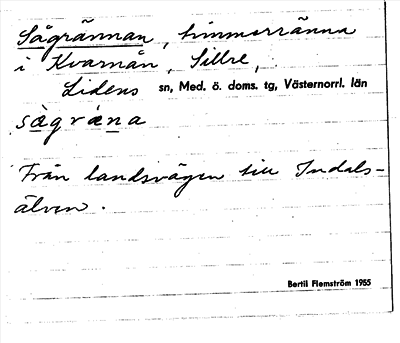 Sågrännan, timmerränna
i Kvarnån, Sillre,
Lidens sn, Med. ö. doms. tg, Västernorrl. län
sàgræ̀na
Från landsvägen till Indals-
älven.
Bertil Flemström 1955